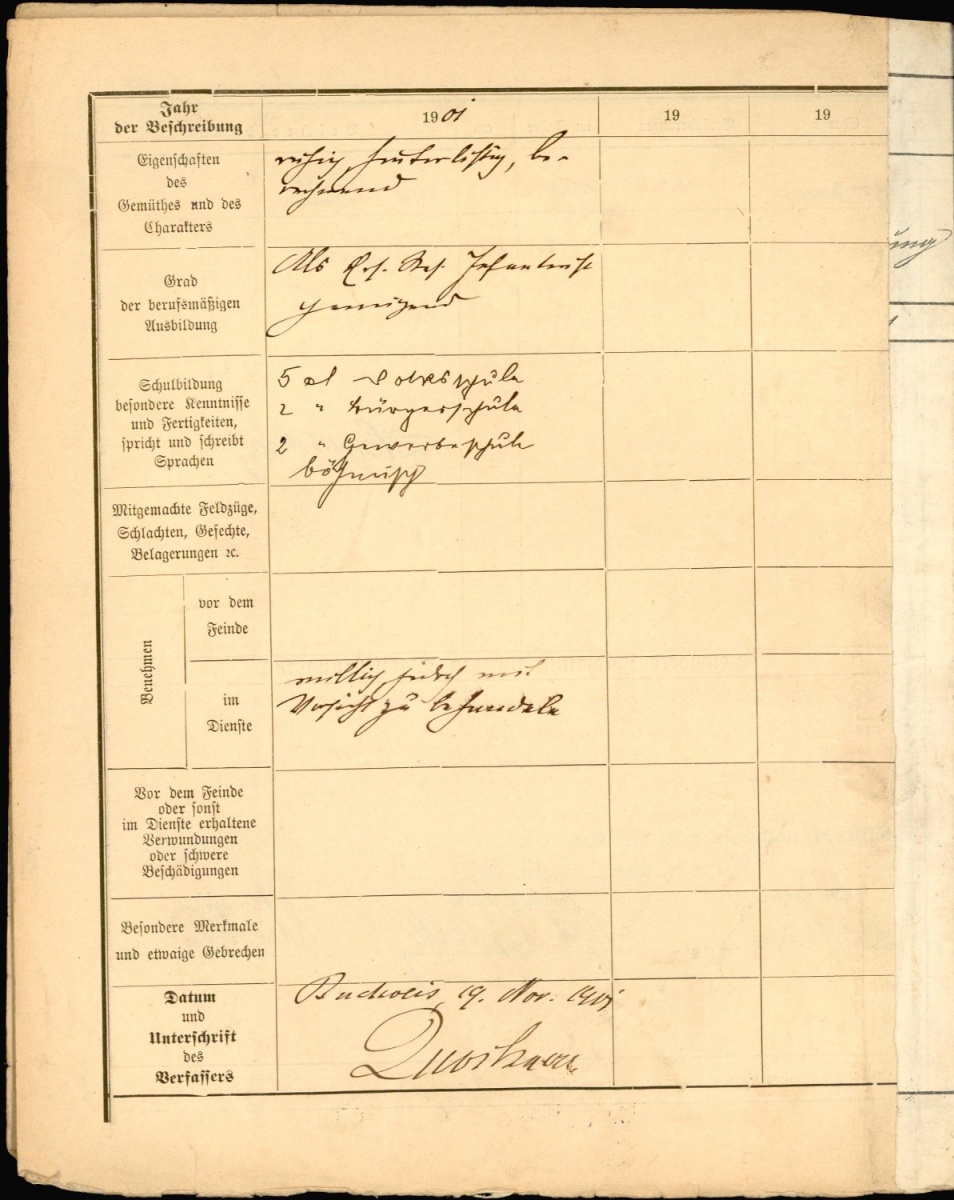 Jahr
der Beschreibung
1901
19
19
Eigenschaften
des
Gemüthes und des
Charakters
ruhig, hinterlistig, be-
rechnend
Grad
der berufsmäßigen
Ausbildung
Als Res. Infanterist
genügend
Schulbildung
besondere Kenntnisse
und Fertigkeiten,
spricht und schreibt
Sprachen
5 Volksschule
2 " Bürgerschule
2 " Gewerbeschule
böhmisch
Mitgemachte Feldzüge,
Schlachten, Gefechte,
Belagerungen ꝛc.
Benehmen
vor dem
Feinde
im
Dienste
willig, jedoch mit
Vorsicht zu behandeln
Vor dem Feinde
oder sonst
im Dienste erhaltene
Verwundungen
oder schwere
Beschädigungen
Besondere Merkmale
und etwaige Gebrechen
Datum
und
Unterschrift
des
Verfassers
Budweis, 19. Nov. 1901
ung